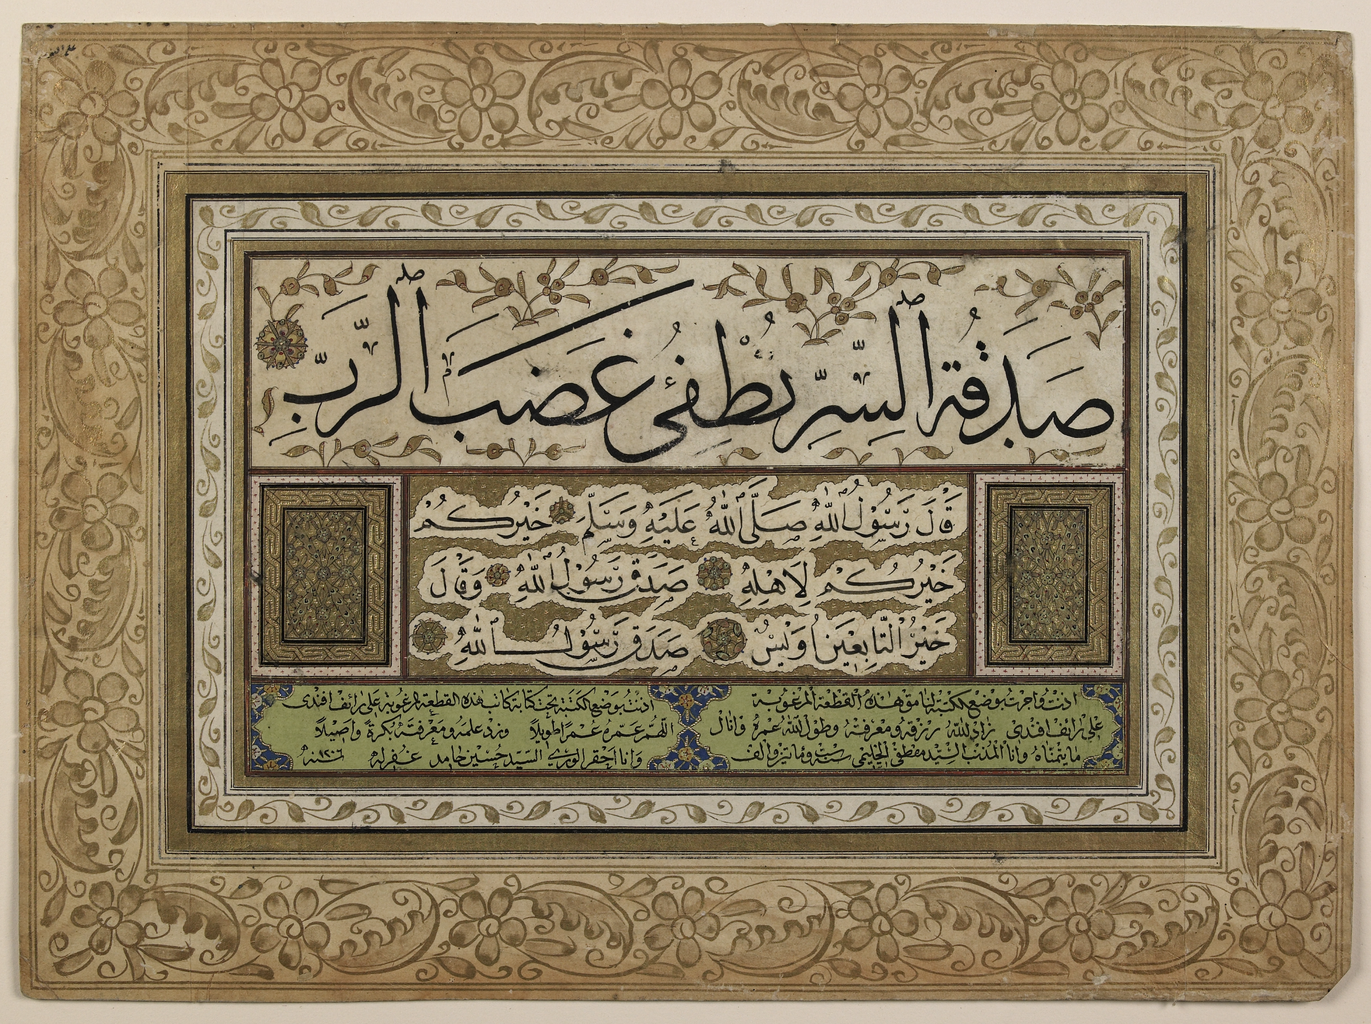 صَدَقَةُ السِّرِّ تُطْفِئُ غَضَبَ الرَّبِّ
قَالَ رَسُولُ اللهِ صَلَّى اللهُ عَلَيْهِ وَسَلَّمَ خَيْرُكُمْ
خَيْرُكُمْ لِاَهْلِهِ صَدَقَ رَسُولُ اللهِ وَقَالَ
خَيْرُ التَّابِعِينَ اُوَيْسٌ صَدَقَ رَسُولُ اللهِ
اذنت واجزت بوضع الكتبة لنامق هذه القطعة المرغوبة
على رائف افندى زاد الله رزقه ومعرفته وطول الله عمره وانال
ما يتمناه وانا المذنب السيد مصطفى الحليمى سنه ست ومايتين والف
اذنت بوضع الكتبة تحت كتابة كاتب هذه القطعة المرغوبة على رائف افندى
اللهم عمره عمرا طويلا وزد علمه ومعرفته بكرة واصيلا
وانا احقر الورى السيد حسين حامد غفر له سنه ١٢٠٦